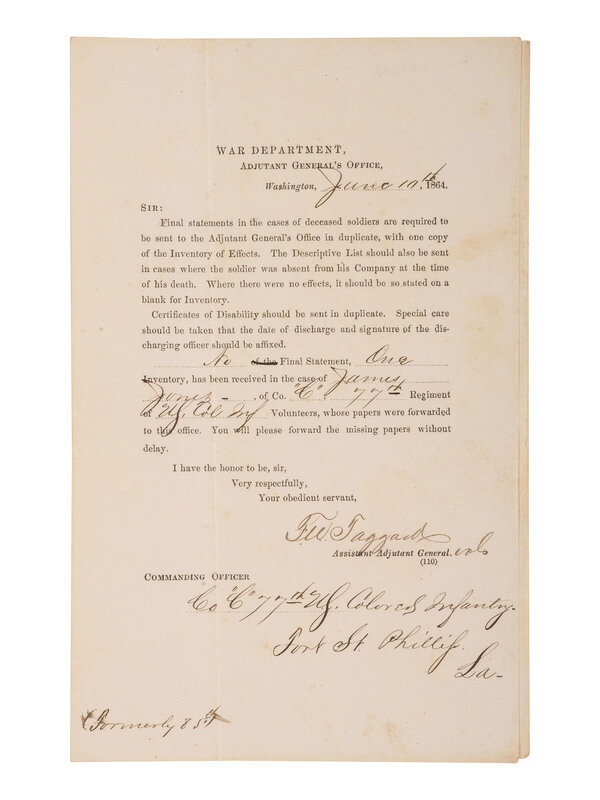 WAR DEPARTMENT,
ADJUTANT GENERAL'S OFFICE,
Washington, June 19th, 1864.
SIR:
Final statements in the cases of deceased soldiers are required to
be sent to the Adjutant General's Office in duplicate, with one copy
of the Inventory of Effects. The Descriptive List should also be sent
in cases where the soldier was absent from his Company at the time
of his death. Where there were no effects, it should be so stated on a
blank for Inventory.
Certificates of Disability should be sent in duplicate. Special care
should be taken that the date of discharge and signature of the dis-
charging officer should be affixed.
No of the Final Statement, One
Inventory, has been received in the case of James
Jones - , of Co. "C" 77th Regiment
of U.S. Col Inf Volunteers, whose papers were forwarded
to this office. You will please forward the missing papers without
delay.
I have the honor to be, sir,
Very respectfully,
Your obedient servant,
Taggard
Assistant Adjutant General. vols
(110)
COMMANDING OFFICER
Co "C" 77th U.S. Colored Infantry-
Fort St. Phillip.
La-
(Formerly 85th)